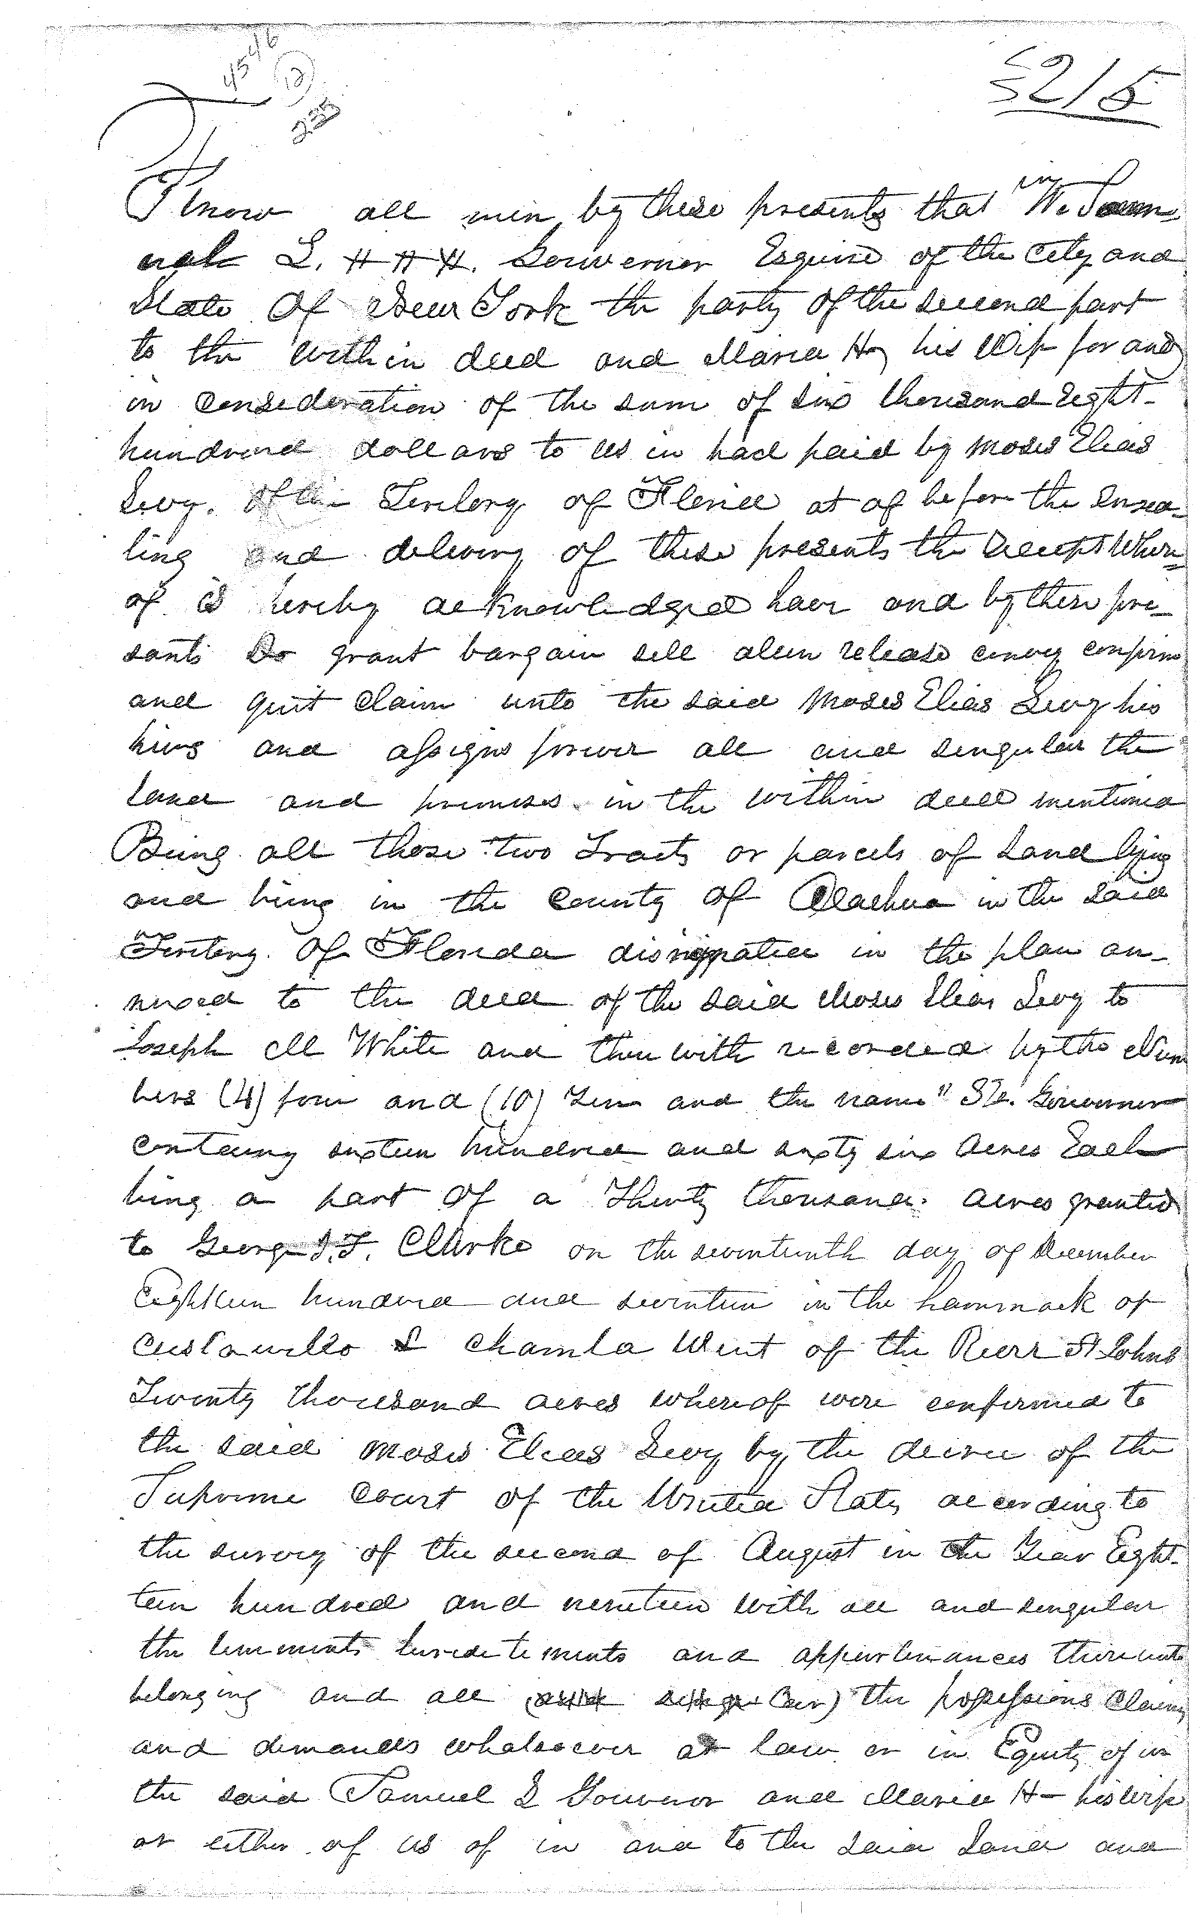 4546
(12)
235
5215
Know all men by these presents that We Sam-
uel L. Gouverneur Esquire of the City and
State Of New York the party of the second part
to the within deed and Maria H, his Wife for and
in consideration of the sum of six thousand Eight-
hundred dollars to us in had paid by Moses Elias
Levy. Of the Teritory of Florida at of before the Ensea-
ling and delivery of these presents the Receipt Wher-
of is hereby acknowledged have and by these pre-
sants Do grant bargain sell alien release convey confirm
and quit Claim unto the said Moses Elias Levy his
heirs and assigns forever all and singular the
land and premises in the within deed mentioned
Being all those two Tracts or parcels of Land lying
and being in the County Of Alachua in the said
Teritory. Of Florida in the plan an-
nexed to the deed of the said Moses Elias Levy to
Joseph M White and therewith recorded by the Num
bers (4) four and (10) Ten and the name "S L. Gouverneur
containg sixteen hundred and sixty six Acres Each
being a part Of a Thirty thousand. acres granted
to George J. F. Clarke on the seventeenth day of December
Eighteen hundred and seventeen in the hammock of
Cuscowillo & Chamla West of the River St Johns
Twenty thousand acres whereof were confirmed to
the said Moses Elias Levy by the decree of the
Supreme Court of the United States according to
the survey of the second of August in the Year Eight-
teen hundred and nineteen with all and singular
the tenements hereditements and appurtenances thereunto
belonging and all the possessions Claims
and demands whatsoever at law or in Equity of us
the said Samuel L Gouvenor and Maria H- his Wife
or either of us of in and to the said Land and